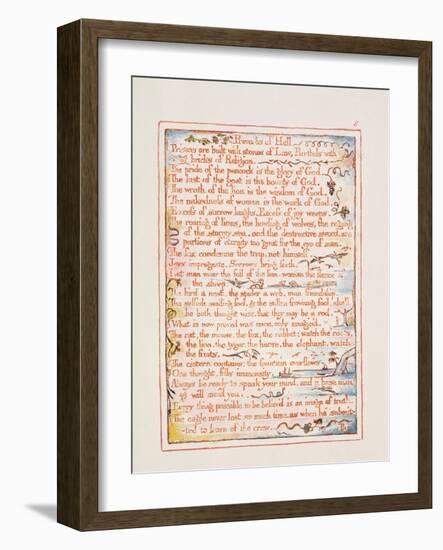 8
Proverbs of Hell
Prisons are built with stones of Law, Brothels with
bricks of Religion.
The pride of the peacock is the glory of God.
The lust of the goat is the bounty of God.
The wrath of the lion is the wisdom of God.
The nakedness of woman is the work of God.
Excess of sorrow laughs. Excess of joy weeps.
The roaring of lions, the howling of wolves, the raging
of the stormy sea, and the destructive sword, are
portions of eternity too great for the eye of man.
The fox condemns the trap, not himself.
Joys impregnate. Sorrows bring forth.
Let man wear the fell of the lion, woman the fleece of
the sheep.
The bird a nest, the spider a web, man friendship.
The selfish smiling fool, & the sullen frowning fool, shall
be both thought wise, that they may be a rod.
What is now proved was once, only imagin'd.
The rat, the mouse, the fox, the rabbit: watch the roots,
the lion, the tyger, the horse, the elephant, watch
the fruits.
The cistern contains: the fountain overflows
One thought, fills immensity.
Always be ready to speak your mind, and a base man
will avoid you.
Every thing possible to be believ'd is an image of truth.
The eagle never lost so much time, as when he submit-
-ted to learn of the crow.